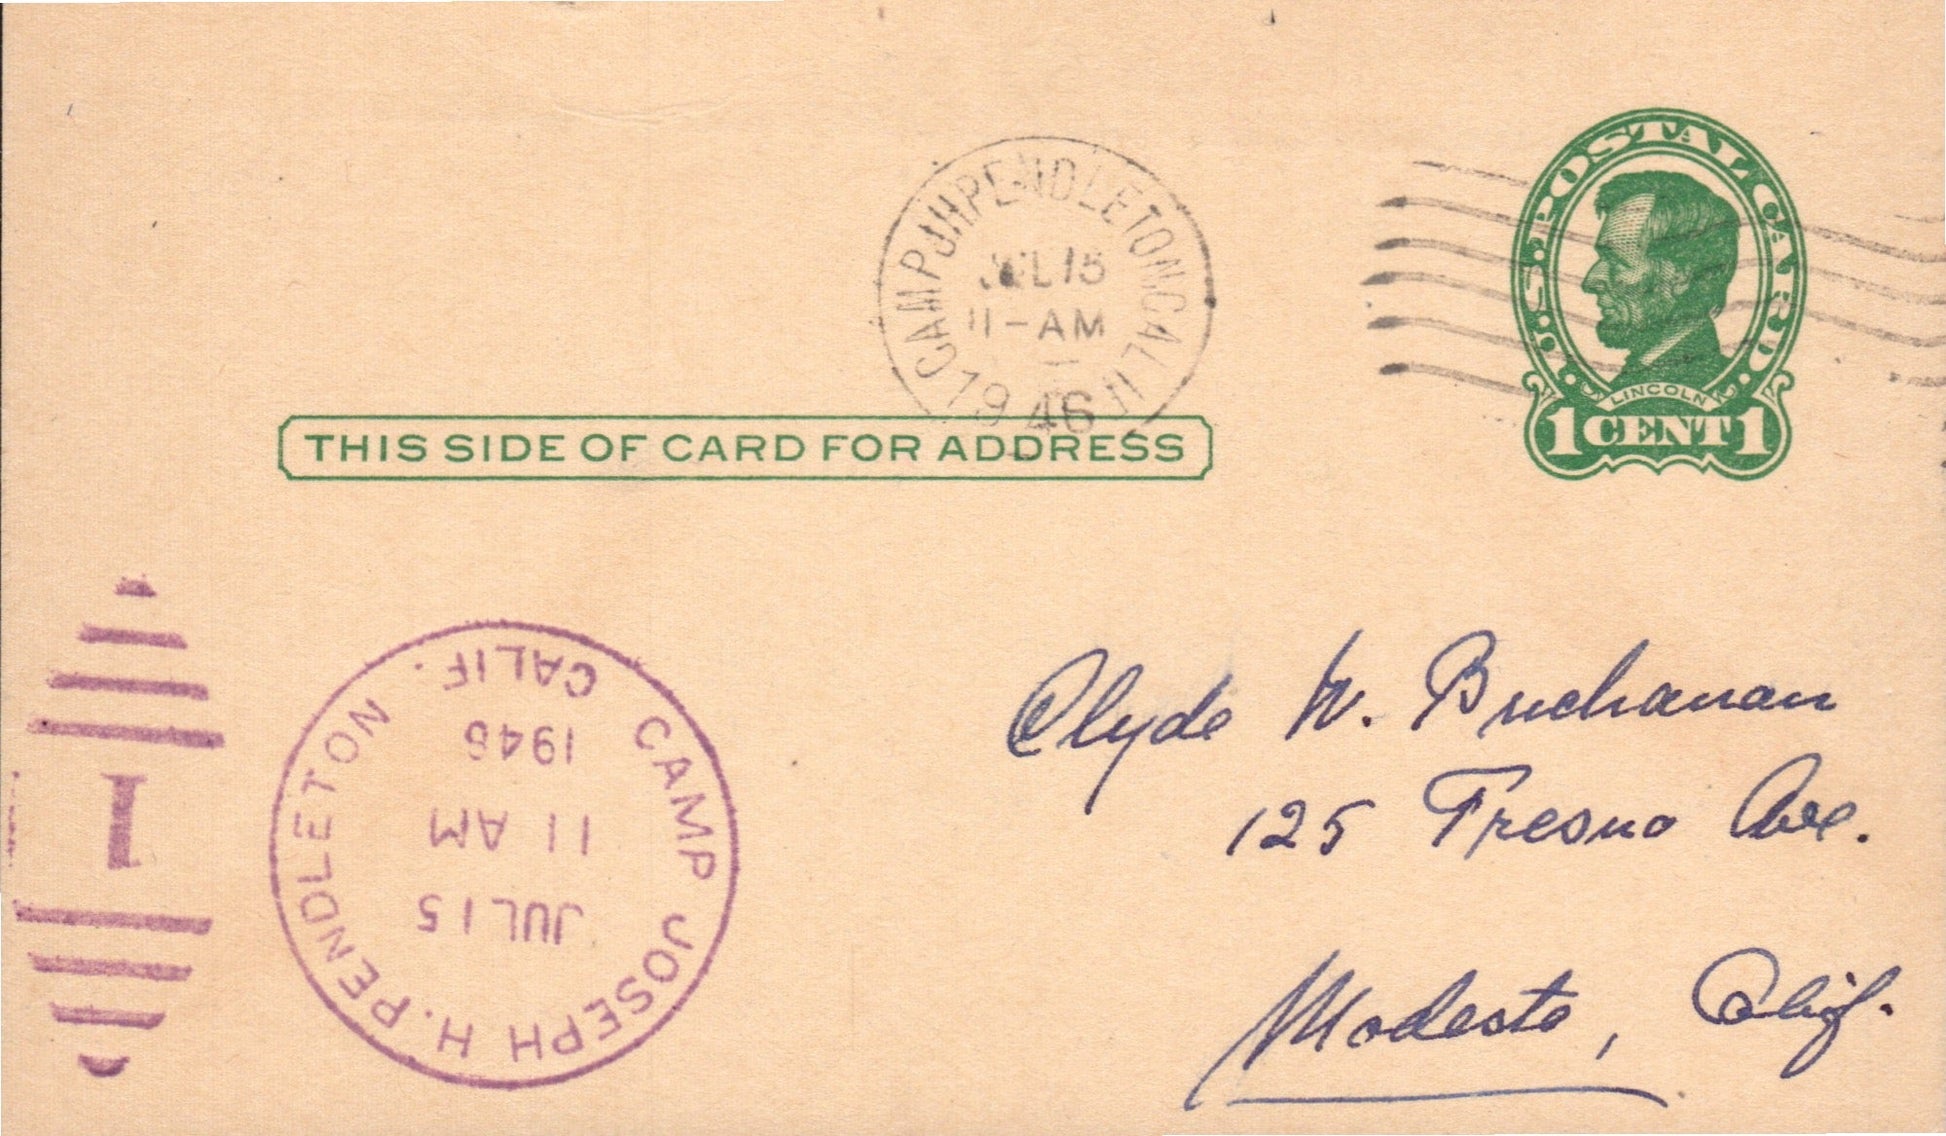 U.S. POSTAL CARD.
LINCOLN
1 CENT 1
CAMP J H PENDLETON CALIF
JUL 15
11-AM
1946
THIS SIDE OF CARD FOR ADDRESS
CAMP JOSEPH H. PENDLETON.
CALIF.
1946
11 AM
JUL 15
1
Clyde W. Buchanan
125 Fresno Ave.
Modesto, Calif.